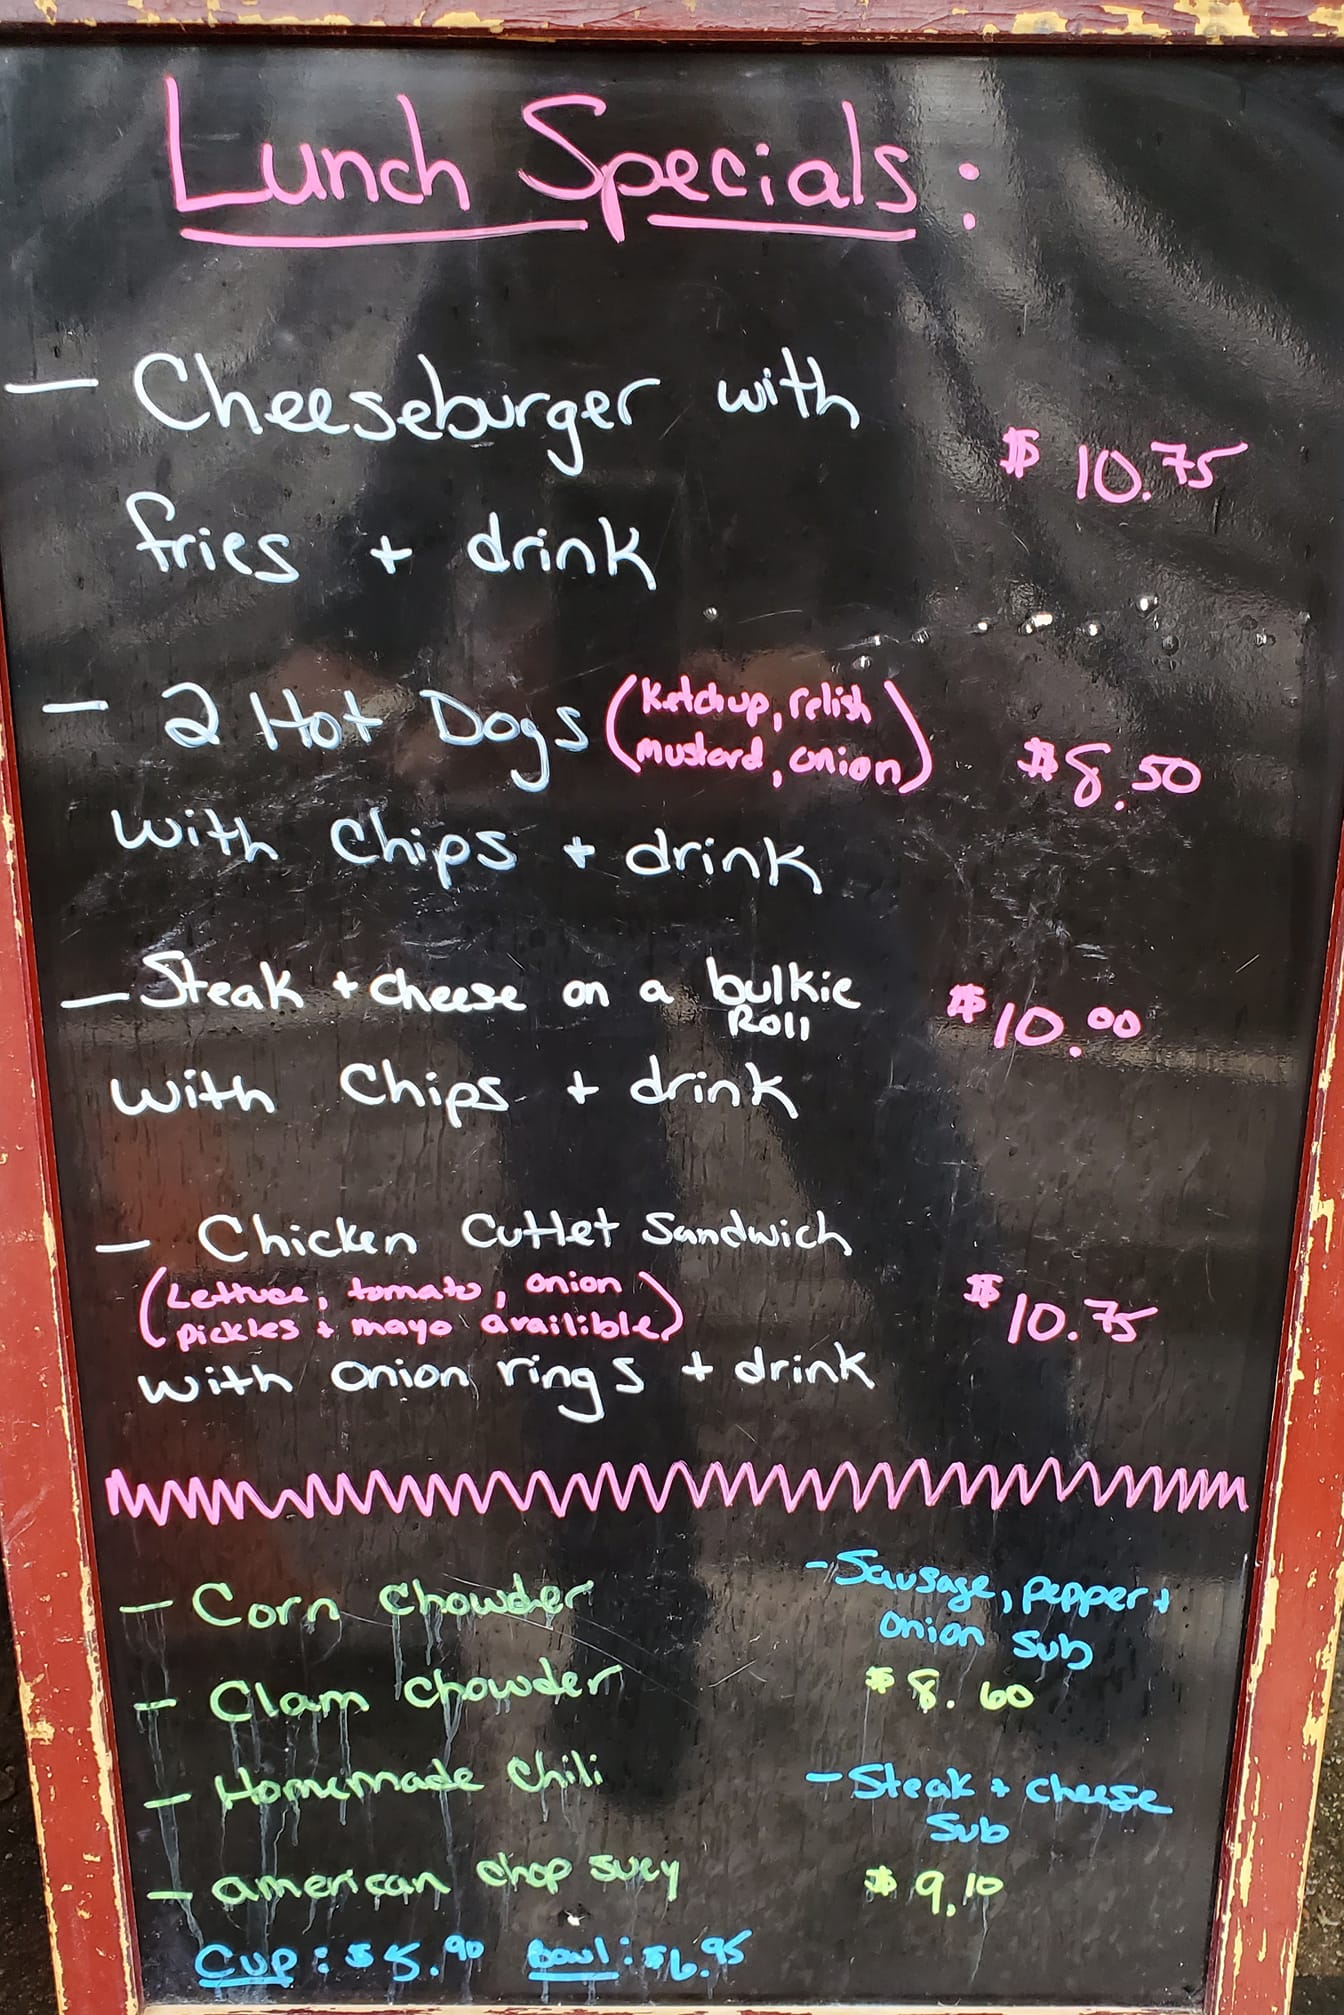 Lunch Specials:
- Cheeseburger with
fries + drink
$10.75
- 2 Hot Dogs (ketchup, relish
mustard, onion)
$8.50
with chips + drink
- Steak + cheese on a bulkie
Roll
$10.00
with chips + drink
- Chicken Cutlet Sandwich
(Lettuce, tomato, onion
pickles + mayo availible)
$10.75
with onion rings + drink
- Corn chowder
- Clam chowder
- Homemade Chili
- american chop suey
Cup: $5.90 Bowl: $6.95
- Sausage, pepper +
onion sub
$8.60
- Steak + cheese
Sub
$9.10